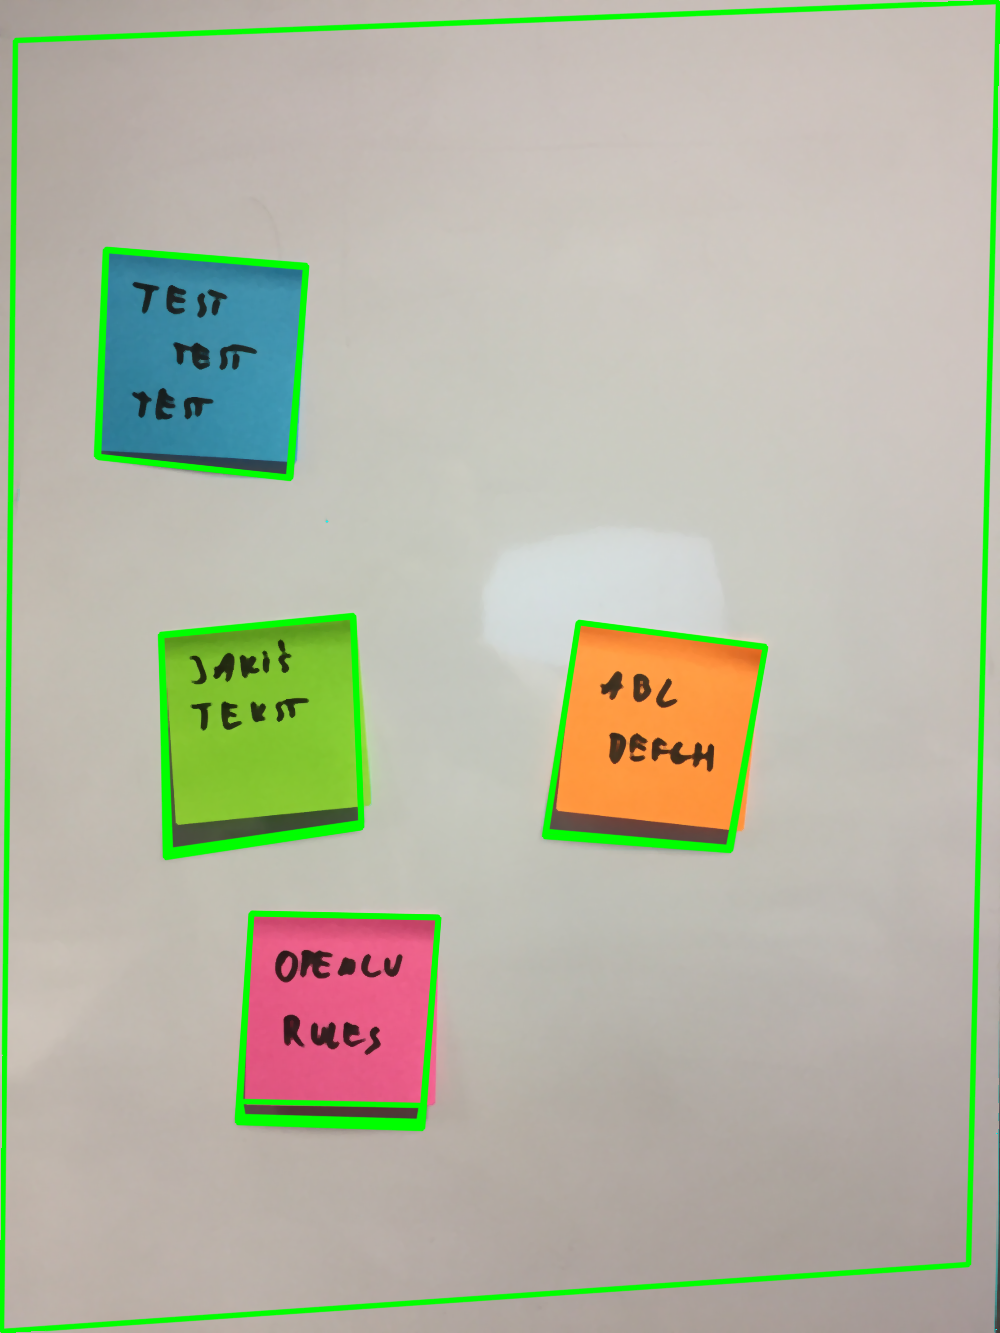 TEST
TEST
TEST
JAKIŚ
TEKST
ABC
DEFGH
OPENCV
RULES